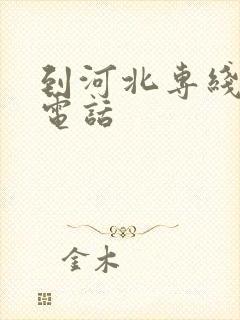 到河北专綫
電話
金木